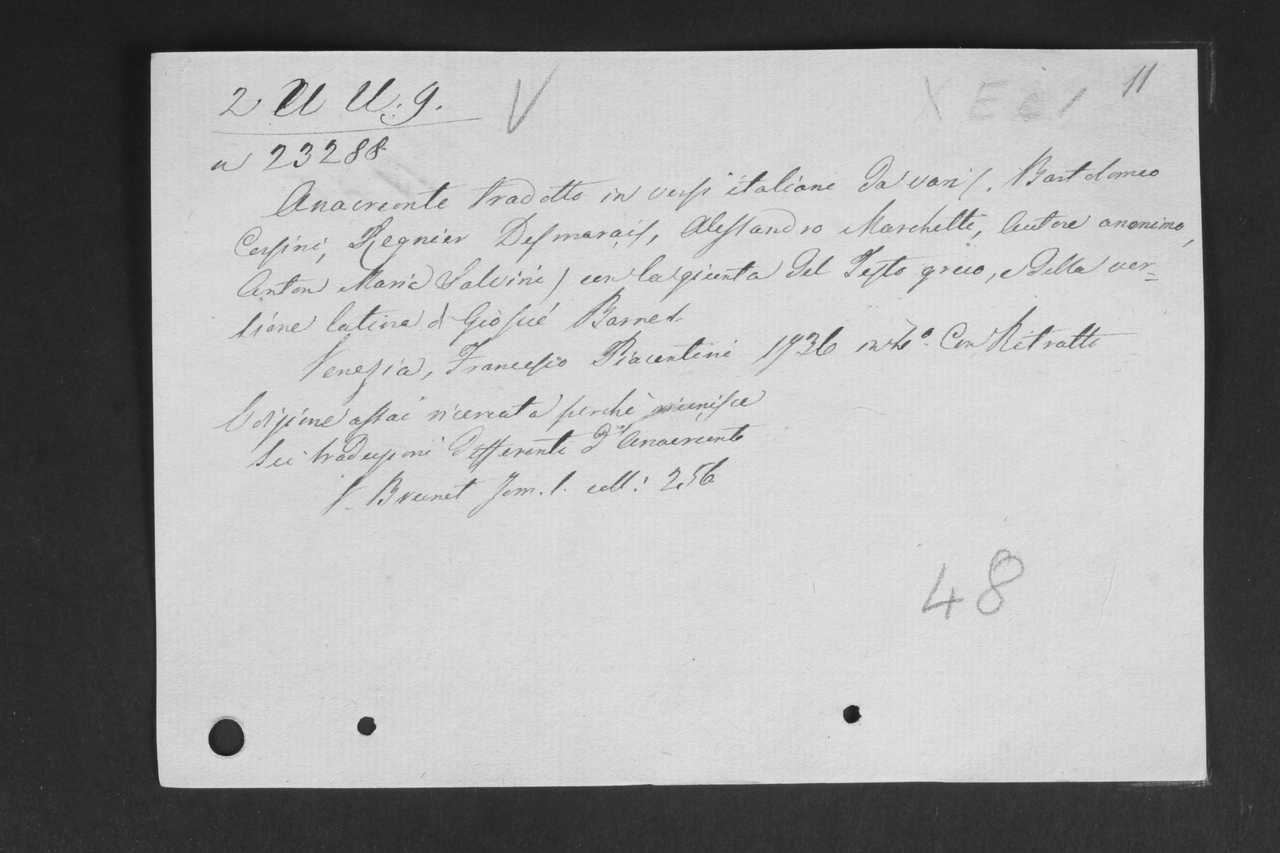 2 U U. 9. V X E 11
a 23288
Anacreonte tradotto in versi italiani da varij. Bartolomeo
Corsini, Regnier Desmarais, Alessandro Marchetti, Autore anonimo,
Anton Maria Salvini) con la giunta del Testo greco, e della ver=
sione latina di Giosué Barnes.
Venezia, Francesco Piacentini 1736 in 4.o Con Ritratto
Edizione assai ricercata perchè riunisce
sei traduzioni differenti d'Anacreonte
V. Brunet Tom. 1. coll: 256
48